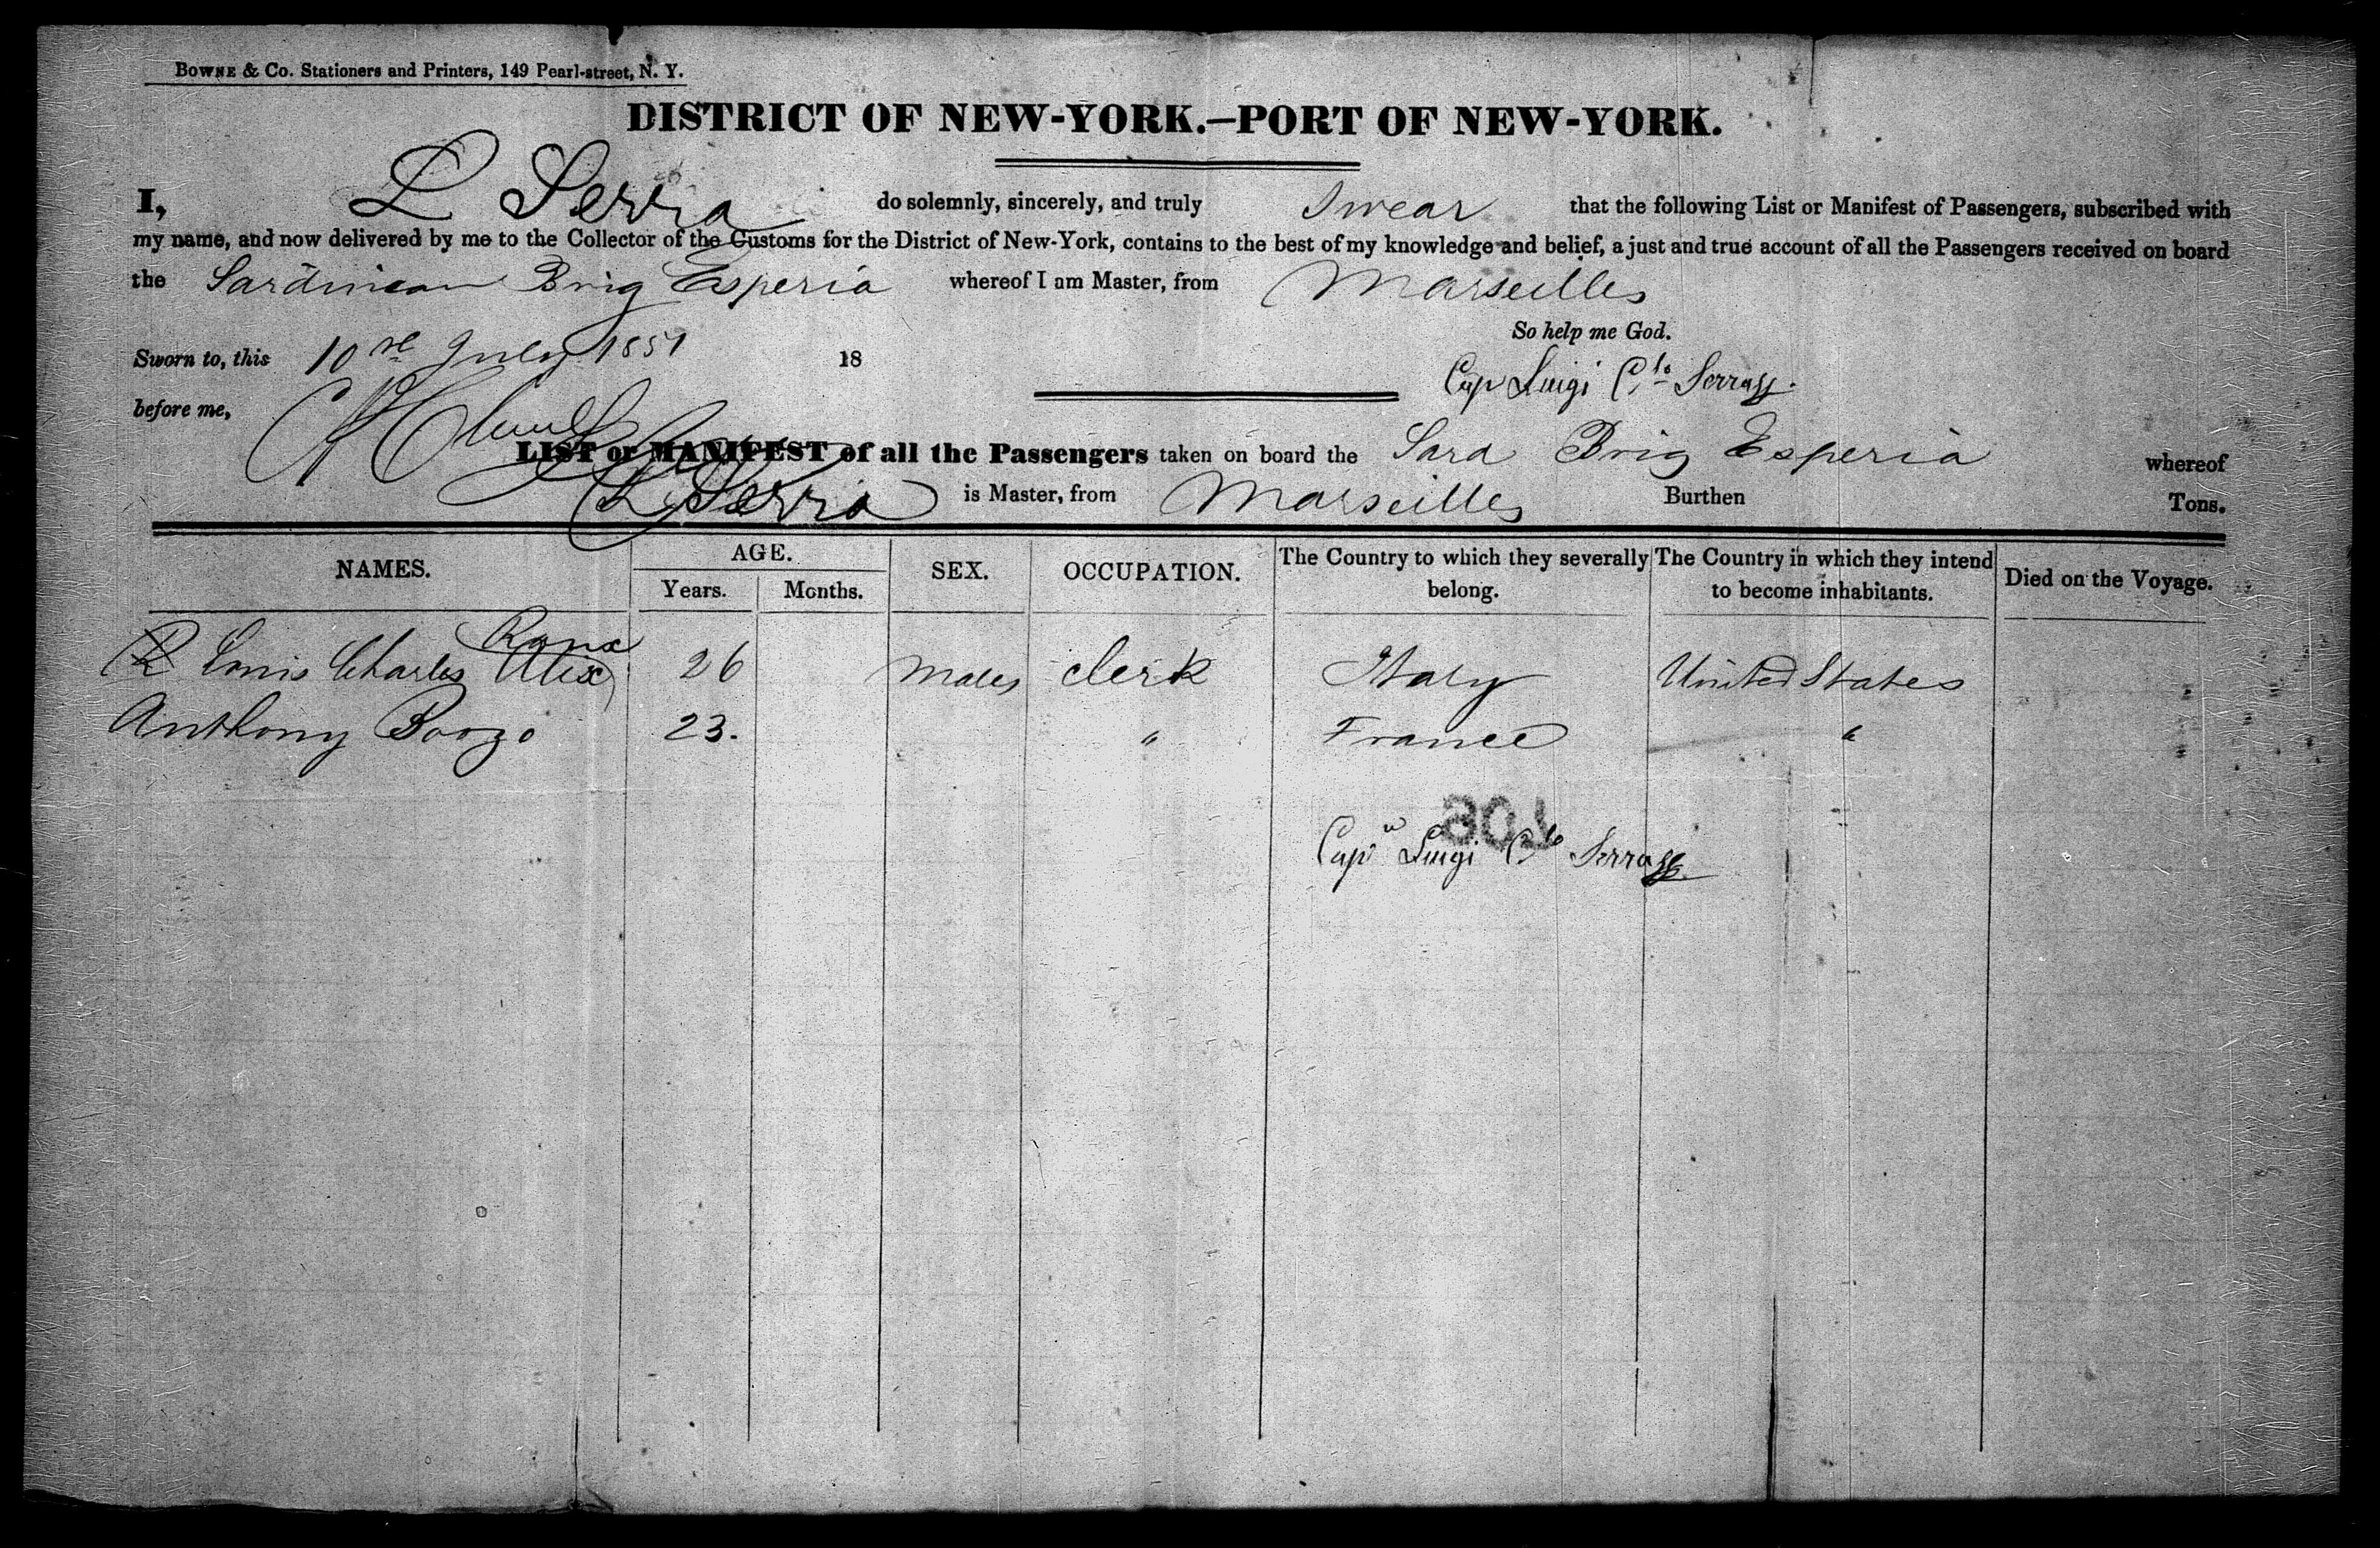 BOWNE & Co. Stationers and Printers, 149 Pearl-street, N. Y.
DISTRICT OF NEW-YORK.—PORT OF NEW-YORK.
I, L Serra do solemnly, sincerely, and truly Swear that the following List or Manifest of Passengers, subscribed with
my name, and now delivered by me to the Collector of the Customs for the District of New-York, contains to the best of my knowledge and belief, a just and true account of all the Passengers received on board
the Sardinian Brig Esperia whereof I am Master, from Marseilles
So help me God.
Sworn to, this 10 July 1851 18
Cap Luigi Serra
before me,
LIST or MANIFEST of all the Passengers taken on board the Sard Brig Esperia whereof
L Serra is Master, from Marseilles Burthen Tons.
NAMES. AGE. SEX. OCCUPATION. The Country to which they severally belong. The Country in which they intend to become inhabitants. Died on the Voyage.
Years. Months.
Roux
Louis Charles Alix 26 Males Clerk Italy United States
Anthony Borzo 23. " France "
Capn Luigi Serra